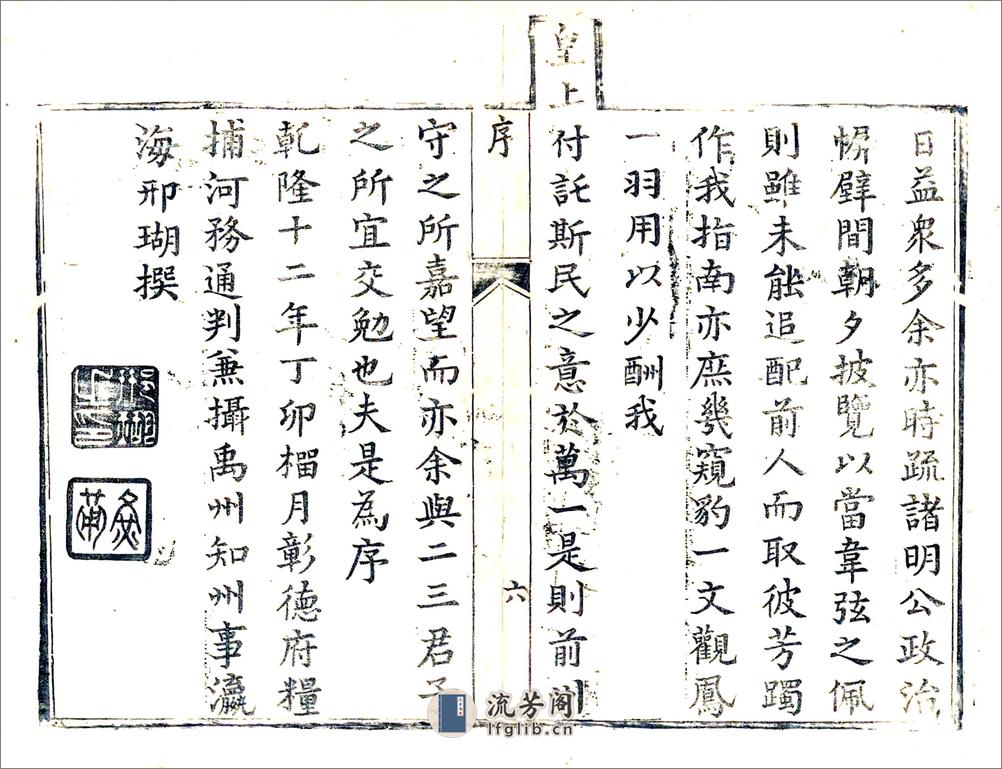 日益衆多余亦時疏諸明公政治
㡠壁間朝夕披覽以當韋弦之佩
則雖未能追配前人而取彼芳躅
作我指南亦庶幾窺豹一文觀鳳
一羽用以少酬我
皇上
付託斯民之意於萬一是則前州
序
六
守之所嘉望而亦余與二三君子
之所宜交勉也夫是為序
乾隆十二年丁卯橊月彰德府糧
捕河務通判兼攝禹州知州事瀛
海邢瑚撰
流芳阁
lfglib.cn